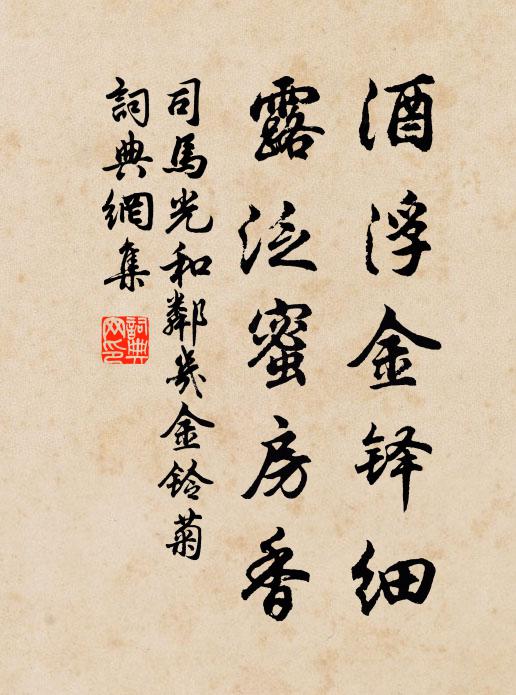 酒浮金铎细
露泛蜜房香
司馬光和鄰幾金铃菊
詞典網集
詞典網印